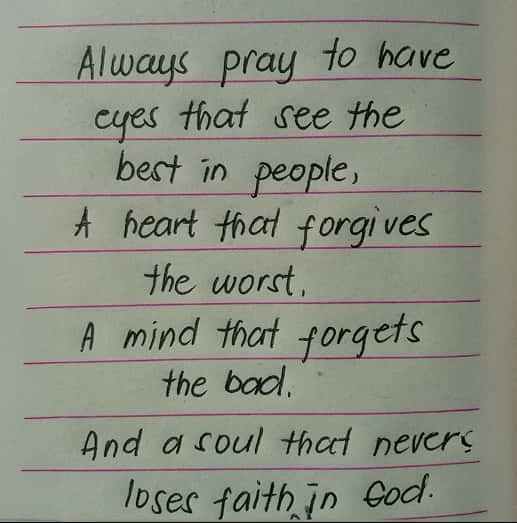 Always pray to have
eyes that see the
best in people,
A heart that forgives
the worst.
A mind that forgets
the bad.
And a soul that never
loses faith in God.